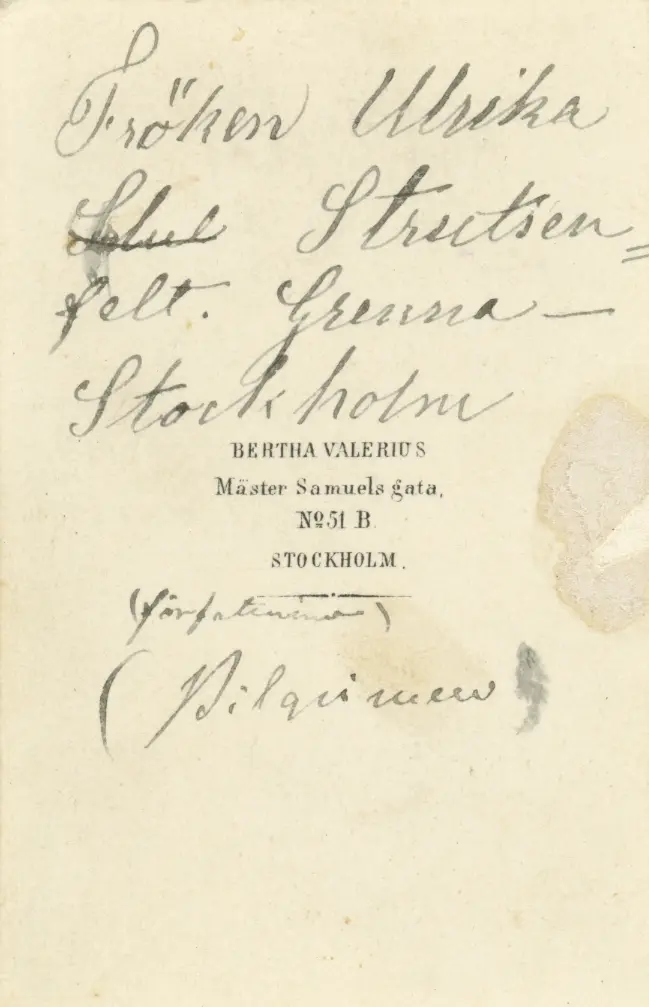 Fröken Ulrika
Strutsen=
felt. Grenna —
Stockholm
BERTHA VALERIUS
Mäster Samuels gata,
Nº 51 B.
STOCKHOLM.
(författarinna)
(Pilgrimen)